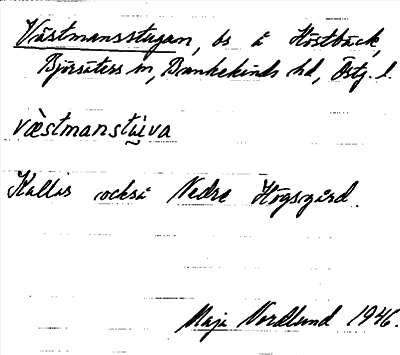 Västmansstugan, bs å Höstbäck,
Björsäters sn, Bankekinds hd, Östg. l.
væstmanstúva
Kallas också Nedre Högsgård.
Maja Nordlund 1946.